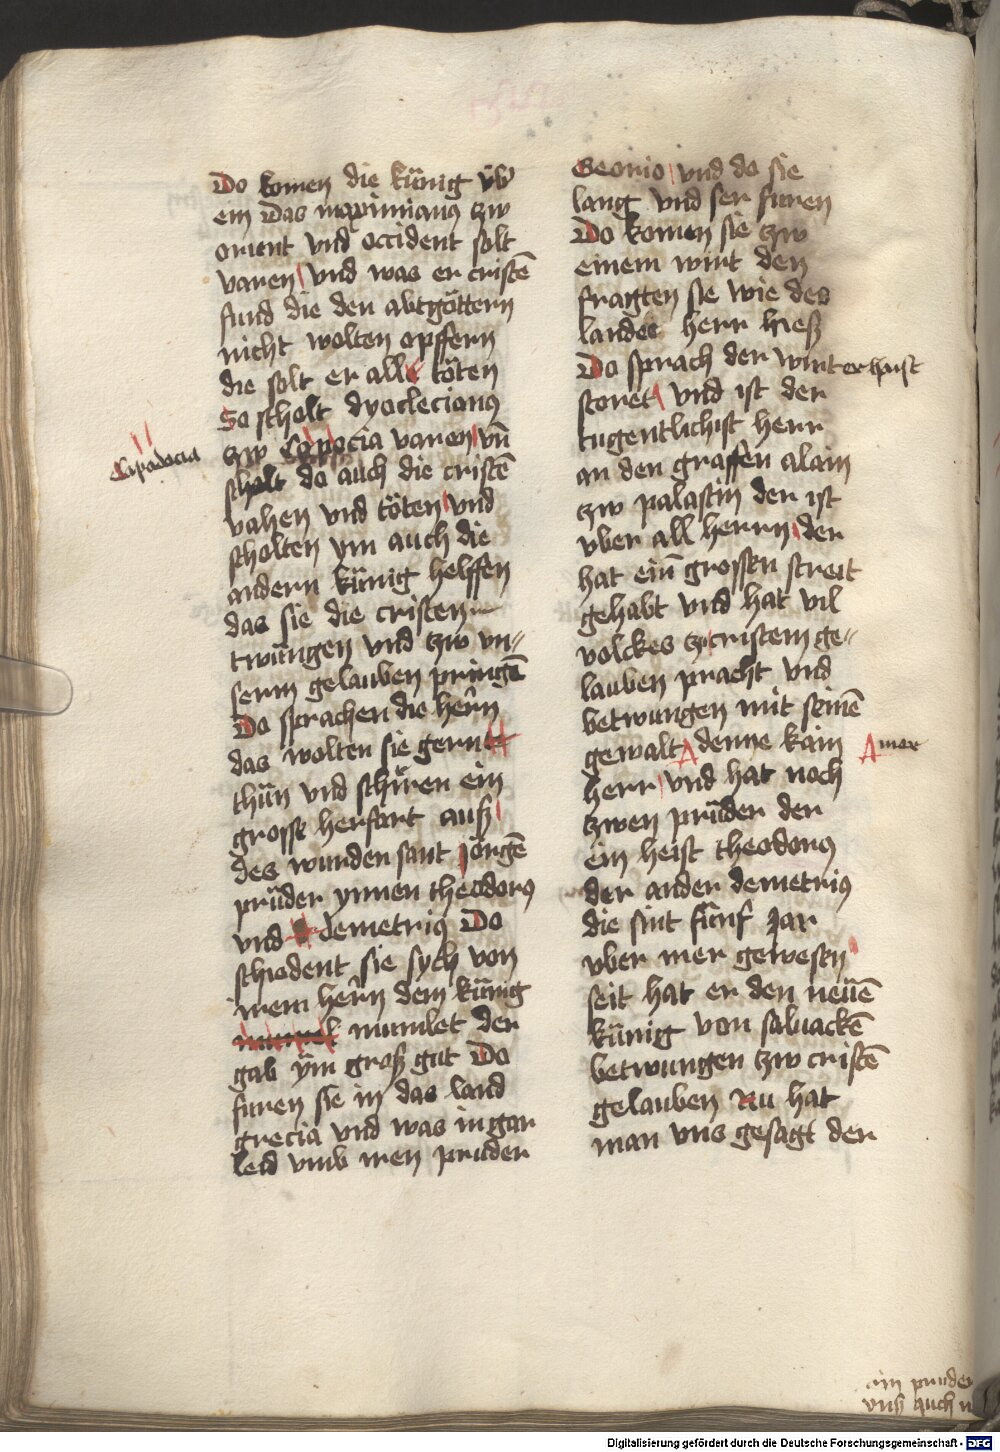 Do komen die künig üb
ein Das maximianus zw
orient vnd occident solt
varen vnd was er cristē
fund die den abtgöttern
nicht wolten opffern
die solt er all töten
So scholt dyoclecianus
zw Capocia varen vn̄
Capadocia
scholt do auch die cristē
vahen vnd töten vnd
scholten ym auch die
andern künig helffen
das sie die cristen
twüngen vnd zw vn〃
serm gelauben pringē
Do sprachen die herñ
das wolten sie gern
thün vnd schüren ein
grosse herfart auß
des wurden sant jörgē
prüder ynnen theodorus
vnd demetrius Do
schiedent sie sych von
irem herñ dem künig
mumlet der
gab ÿm groß gut Do
furen sie in das land
grecia vnd was in gar
leid vmb iren pruder
Georio vnd do sie
lang vnd ser furen
Do komen sie zw
einem wirt den
fragten sie wie des
landes herr hieß
Do sprach der wirt er haist
storet vnd ist der
tugentlichist herr
an den graffen alain
zw palastin der ist
vber all herrn der
hat ein̄ grossen streit
gehabt vnd hat vil
volckes zu cristem ge〃
lauben pracht vnd
betwungen mit seinē
gewalt A denne kain
A mer
herr vnd hat noch
zwen prüder der
ein heist theodorus
der ander demetrius
die sint fünf Jar
vber mer gewesen
seit hat er den neüē
künig von saluackē
betwungen zw cristē
gelauben Nu hat
man vns gesagt der
pruder
auch
Digitalisierung gefördert durch die Deutsche Forschungsgemeinschaft - DFG